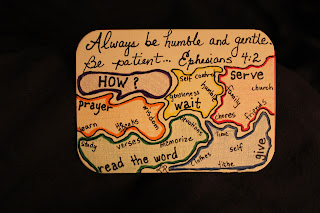 Always be humble and gentle.
Be patient... Ephesians 4:2
HOW?
self control
serve
church
family
friends
chores
humble
wait
prayer
wisdom
learn
study
verses
memorize
devotions
read the word
time
self
clothes
tithe
give